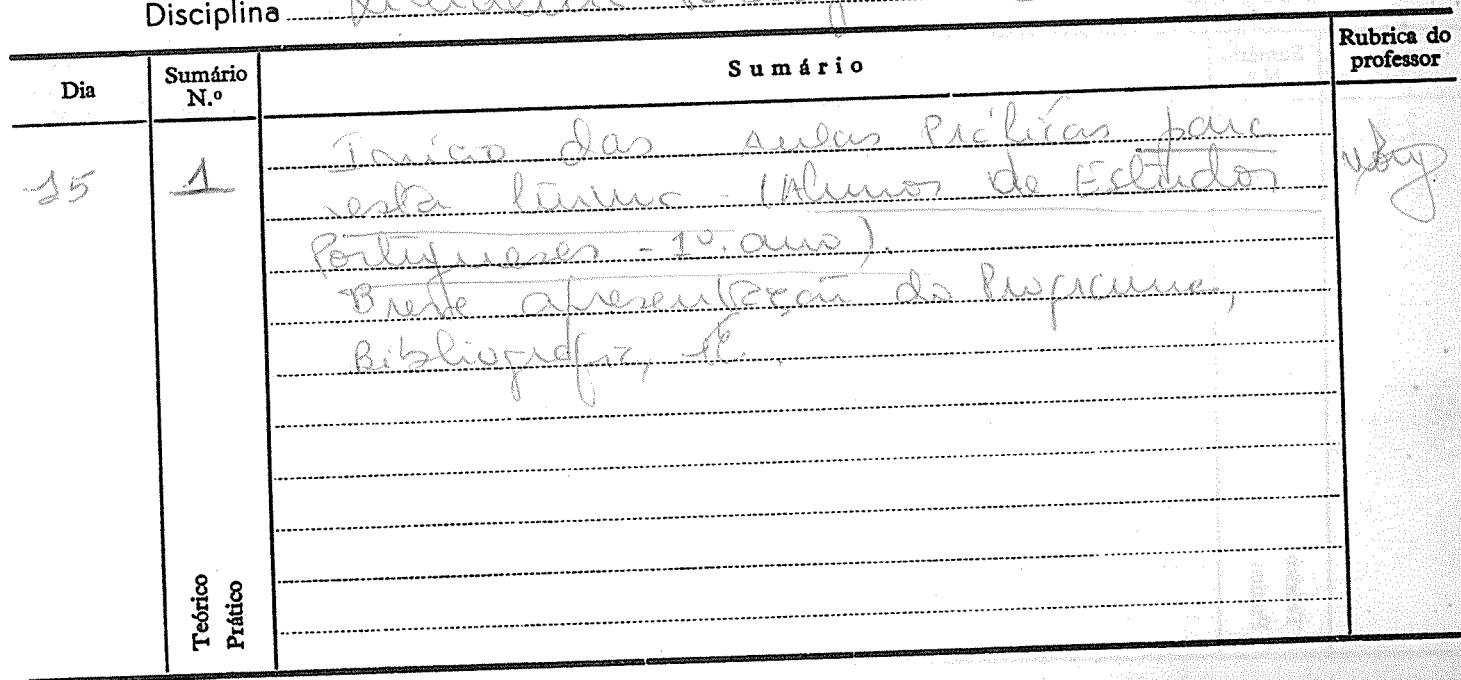 Disciplina
Dia
Sumário N.º
Sumário
Rubrica do professor
15
1
Início das Aulas Práticas para
esta turma - (Alunos de Estudos
Portugueses - 1º. ano).
Breve apresentação do Programa,
Bibliografia, etc.
Teórico
Prático